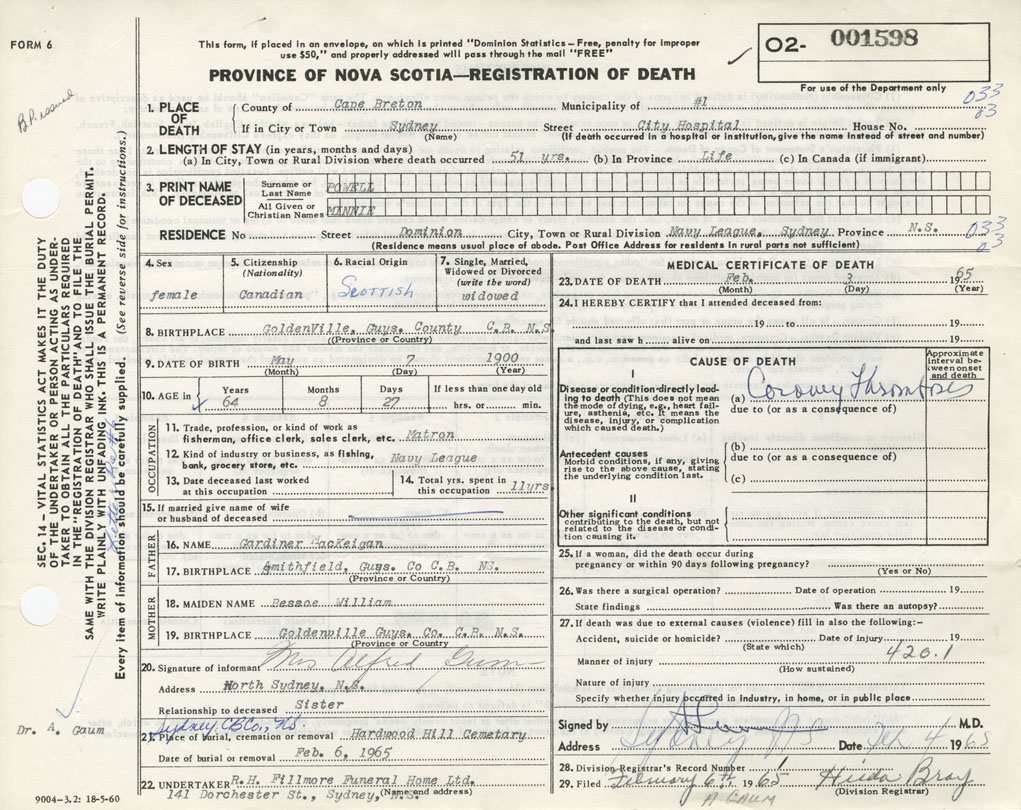 FORM 6
This form, if placed in an envelope, on which is printed "Dominion Statistics – Free, penalty for improper
use $50," and properly addressed will pass through the mail "FREE"
PROVINCE OF NOVA SCOTIA—REGISTRATION OF DEATH
O2- 001598
For use of the Department only
B.P. issued
033
03
1. PLACE OF DEATH
County of Cape Breton Municipality of #1
If in City or Town Sydney Street City Hospital House No.
(Name) (If death occurred in hospital or institution, give the name instead of street and number)
2. LENGTH OF STAY (in years, months and days)
(a) In City, Town or Rural Division where death occurred 51 yrs. (b) In Province Life (c) In Canada (if immigrant)
3. PRINT NAME OF DECEASED
Surname or Last Name POWELL
All Given or Christian Names MINNIE
RESIDENCE No Street Dominion City, Town or Rural Division Navy League, Sydney Province N.S.
033
03
(Residence means usual place of abode. Post Office Address for residents in rural parts not sufficient)
4. Sex
female
5. Citizenship
(Nationality)
Canadian
6. Racial Origin
Scottish
7. Single, Married,
Widowed or Divorced
(write the word)
widowed
8. BIRTHPLACE GoldenVille, Guys. County C.B. N.S.
(Province or Country)
9. DATE OF BIRTH May 7 1900
(Month) (Day) (Year)
10. AGE in
Years 64
Months 8
Days 27
If less than one day old
hrs. or min.
OCCUPATION
11. Trade, profession, or kind of work as
fisherman, office clerk, sales clerk, etc. Matron
12. Kind of industry or business, as fishing,
bank, grocery store, etc. Navy League
13. Date deceased last worked
at this occupation
14. Total yrs. spent in
this occupation 11yrs.
15. If married give name of wife
or husband of deceased
FATHER
16. NAME Gardiner MacKeigan
17. BIRTHPLACE Smithfield, Guys. Co C.B. NS.
(Province or Country)
MOTHER
18. MAIDEN NAME Bessoe William
19. BIRTHPLACE Goldenville Guys. Co. C.B. N.S.
(Province or Country)
20. Signature of informant Mrs Alfred
Address North Sydney, N.S.
Relationship to deceased Sister
Sydney, C.B.Co., N.S.
21. Place of burial, cremation or removal Hardwood Hill Cemetary
Date of burial or removal Feb. 6, 1965
22. UNDERTAKER R.H. Fillmore Funeral Home Ltd.
141 Dorchester St., Sydney, N.S. (Name and address)
MEDICAL CERTIFICATE OF DEATH
23. DATE OF DEATH Feb. 3 1965
(Month) (Day) (Year)
24. I HEREBY CERTIFY that I attended deceased from:
19 to 19
and last saw h alive on 19
CAUSE OF DEATH
Approximate
interval be-
tween onset
and death
I
Disease or condition directly lead-
ing to death (This does not mean
the mode of dying, e.g., heart fail-
ure, asthenia, etc. It means the
disease, injury, or complication
which caused death.)
(a) Coronary Thrombosis
due to (or as a consequence of)
Antecedent causes
Morbid conditions, if any, giving
rise to the above cause, stating
the underlying condition last.
(b)
due to (or as a consequence of)
(c)
II
Other significant conditions
contributing to the death, but not
related to the disease or condi-
tion causing it.
25. If a woman, did the death occur during
pregnancy or within 90 days following pregnancy?
(Yes or No)
26. Was there a surgical operation? Date of operation 19
State findings Was there an autopsy?
27. If death was due to external causes (violence) fill in also the following:-
Accident, suicide or homicide? Date of injury 19
(State which)
420.1
Manner of injury
(How sustained)
Nature of injury
Specify whether injury occurred in industry, in home, or in public place
Signed by M.D.
Address Sydney NS Date Feb 4 1965
28. Division Registrar's Record Number 1
29. Filed February 6th 1965 Hilda Bray
(Division Registrar)
A GAUM
SEC. 14 – VITAL STATISTICS ACT MAKES IT THE DUTY
OF THE UNDERTAKER OR PERSON ACTING AS UNDER-
TAKER TO OBTAIN ALL THE PARTICULARS REQUIRED
IN THE "REGISTRATION OF DEATH" AND TO FILE THE
SAME WITH THE DIVISION REGISTRAR WHO SHALL ISSUE THE BURIAL PERMIT.
WRITE PLAINLY WITH UNFADING INK. THIS IS A PERMANENT RECORD.
Every item of information should be carefully supplied. (See reverse side for instructions.)
Dr. A. Gaum
9004–3.2: 18-5-60